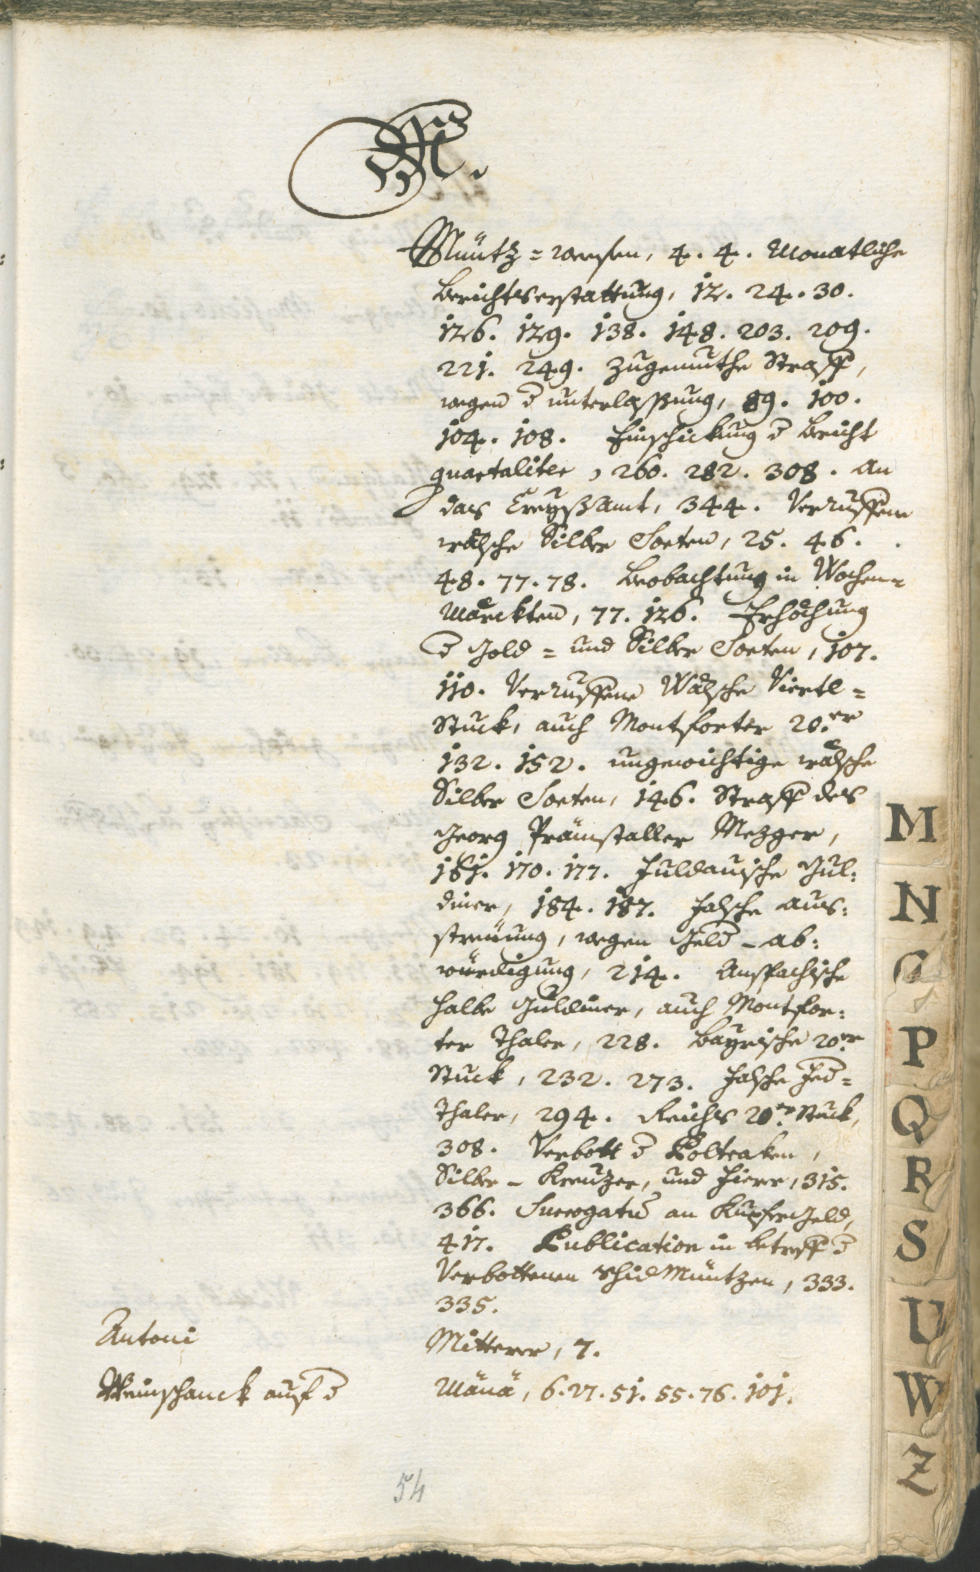 M.
Müntz=weesen, 4. 4. Monatliche
Berichtserstattung, 12. 24. 30.
126. 129. 138. 148. 203. 209.
221. 249. Zugemuthe Straff,
wegen d unterlassung, 89. 100.
104. 108. Einschickung d Bericht
quartaliter, 260. 282. 308. An
das Creyßamt, 344. Verruffene
wälsche Silber Sorten, 25. 46.
48. 77. 78. Beobachtung in Wochen=
Märckten, 77. 126. Erhöchung
d Gold= und Silber Sorten, 107.
110. Verruffene Wälsche Viertl=
Stuck, auch Montforter 20.er
132. 152. ungewichtige wälsche
Silber Sorten, 146. Straff des
Georg Prämstaller Mezger,
161. 170. 177. Fuldauische Gul:
diner, 184. 187. falsche aus:
streuung, wegen Geld-ab:
würdigung, 214. Anspachische
halbe Guldiner, auch Montfor:
ter Thaler, 228. Bayrische 20.er
Stuck, 232. 273. falsche
Thaler, 294. Reichs 20.er Stuck,
308. Verbott d Poltraken,
Silber-Kreuzer, und Vierer, 315.
366. Surrogatū an Kupfergeld,
417. Publication in betreff d
Verbottenen Schid Müntzen, 333.
335.
Antoni Mitterer, 7.
Weinschanck auf d Mänä, 6. 27. 51. 55. 76. 101.
54
M
N
O
P
Q
R
S
U
W
Z